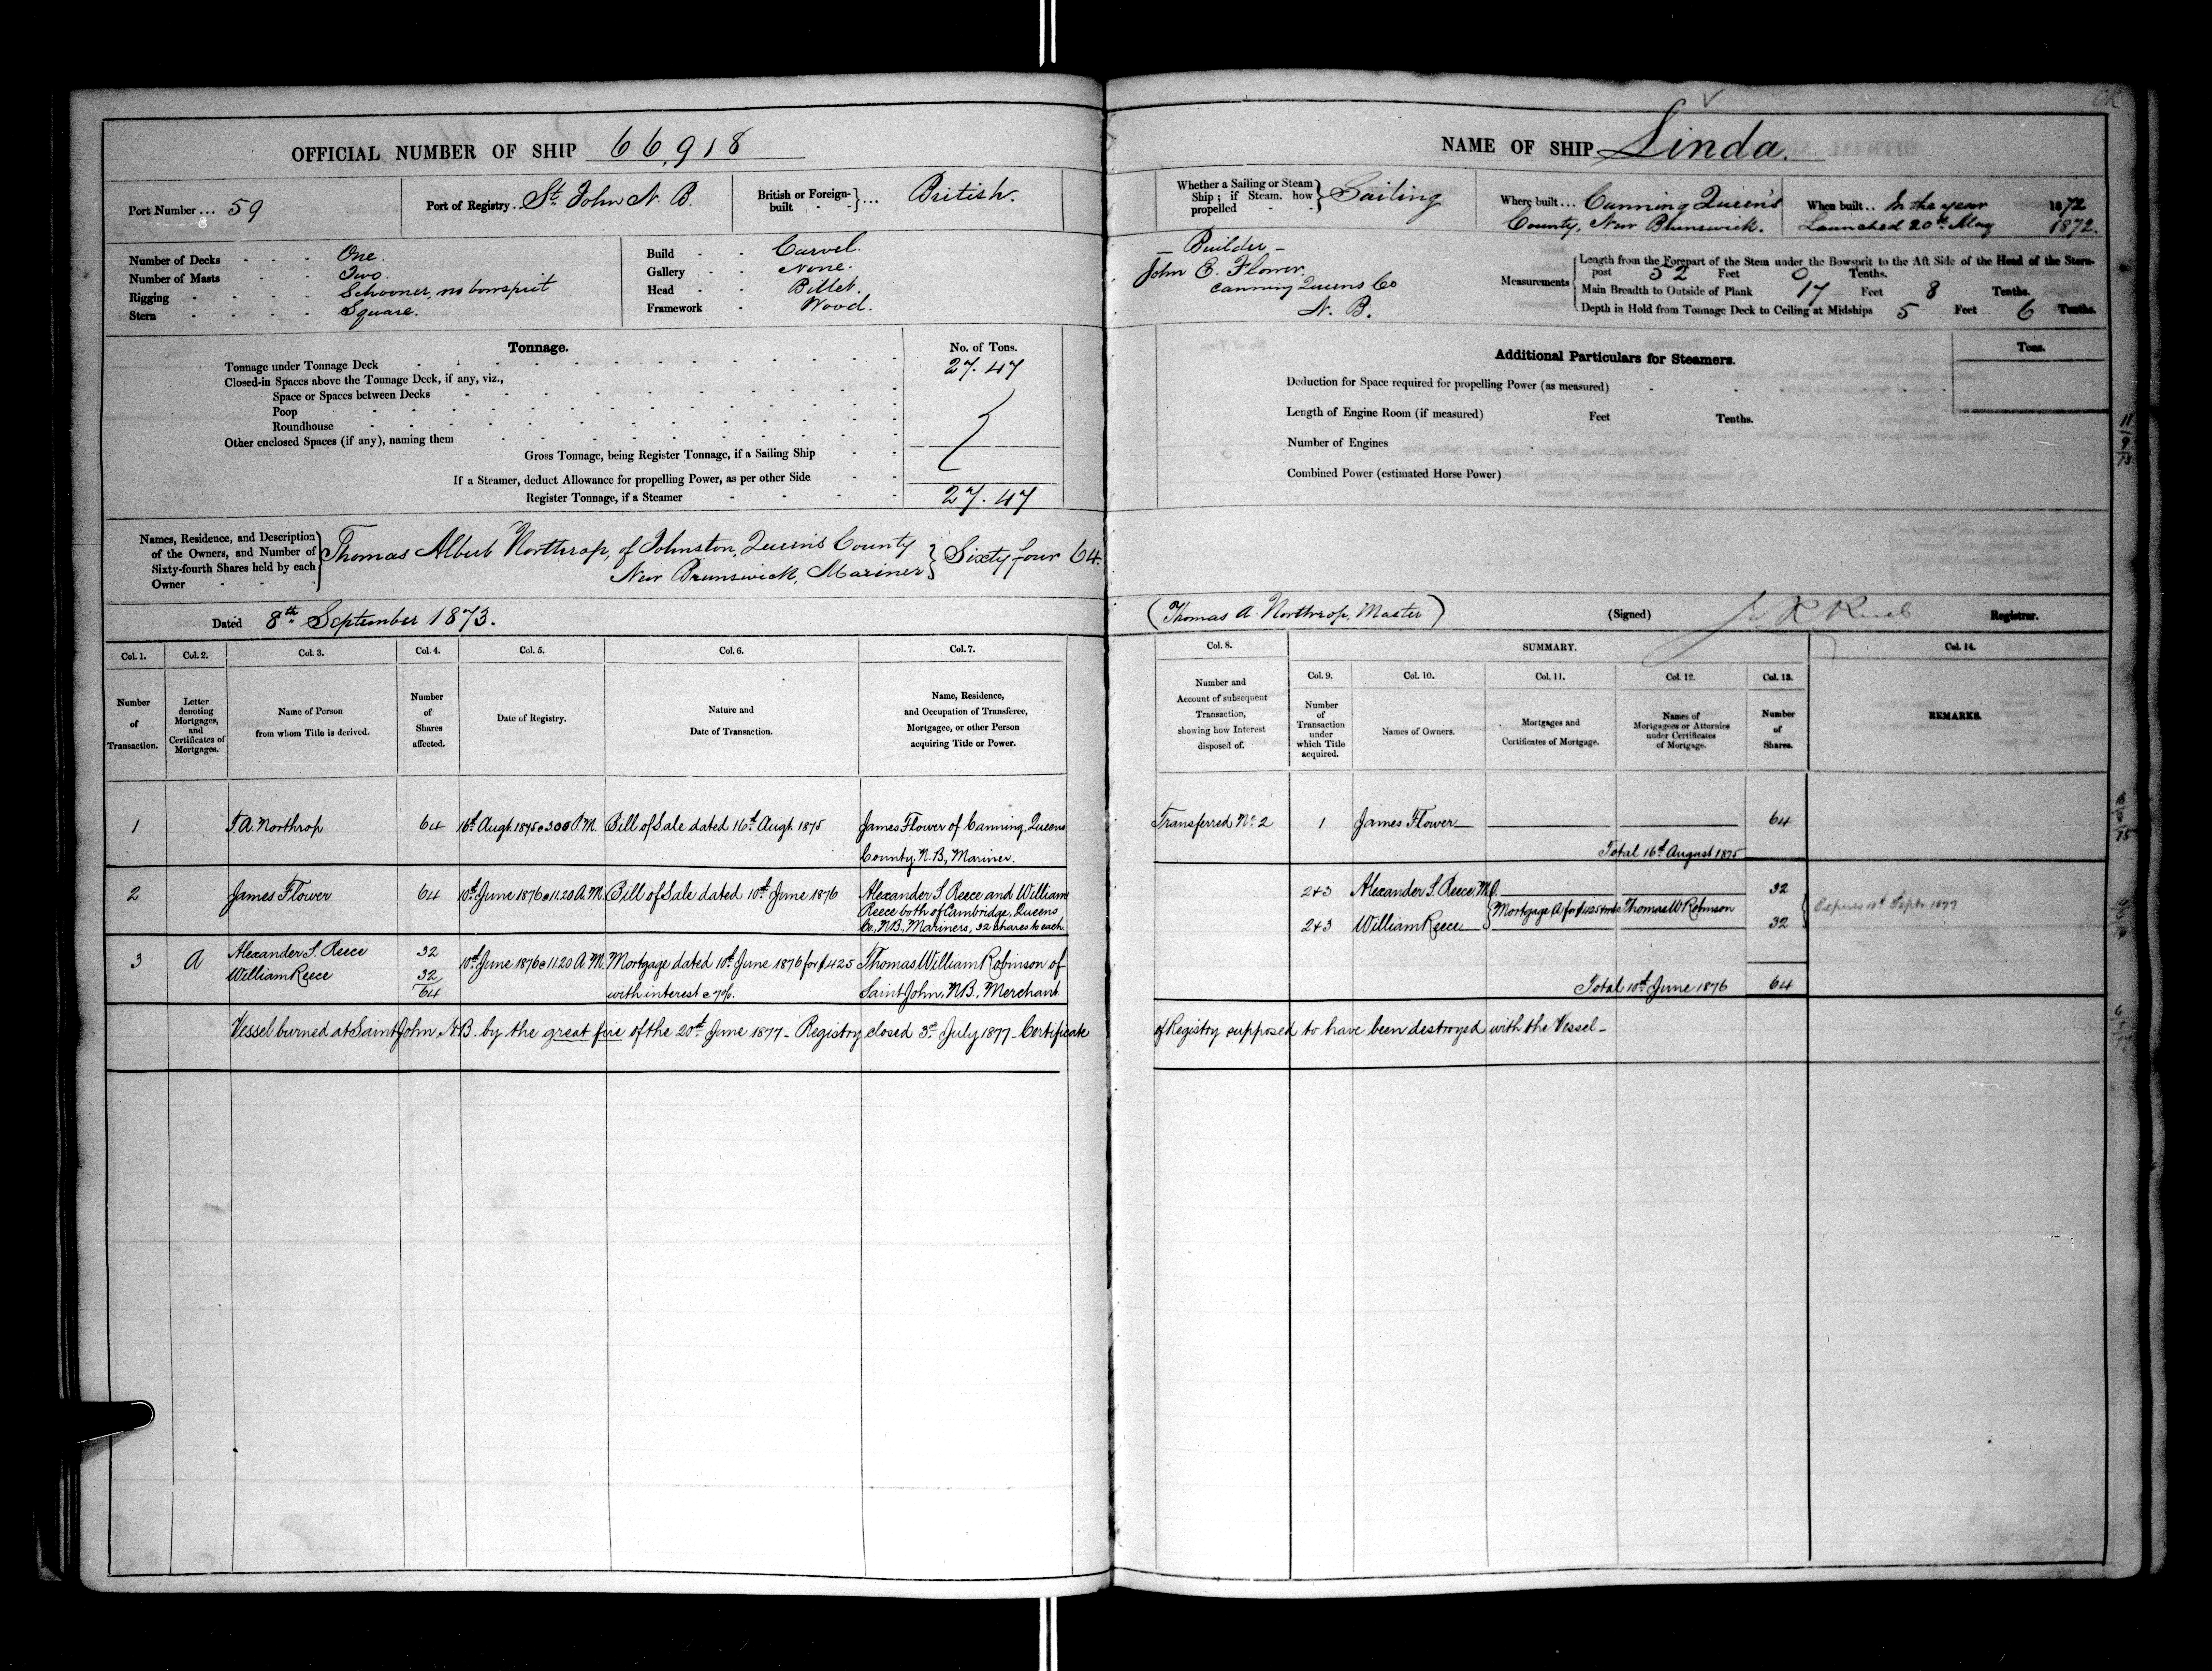 OFFICIAL NUMBER OF SHIP 66,918
Port Number ... 59
Port of Registry . St. John N. B.
British or Foreign-built } ... British.
Number of Decks One.
Number of Masts Two.
Rigging Schooner, no bowsprit
Stern Square.
Build Carvel.
Gallery None.
Head Billet.
Framework Wood.
Tonnage.
No. of Tons.
Tonnage under Tonnage Deck 27.47
Closed-in Spaces above the Tonnage Deck, if any, viz.,
Space or Spaces between Decks
Poop
Roundhouse
Other enclosed Spaces (if any), naming them
Gross Tonnage, being Register Tonnage, if a Sailing Ship
If a Steamer, deduct Allowance for propelling Power, as per other Side
Register Tonnage, if a Steamer 27.47
Names, Residence, and Description
of the Owners, and Number of
Sixty-fourth Shares held by each
Owner
Thomas Albert Northrop, of Johnston, Queen's County
New Brunswick, Mariner } Sixty four 64.
Dated 8th September 1873.
Col. 1. Col. 2. Col. 3. Col. 4. Col. 5. Col. 6. Col. 7.
Number of Transaction.
Letter denoting Mortgages, and Certificates of Mortgages.
Name of Person from whom Title is derived.
Number of Shares affected.
Date of Registry.
Nature and Date of Transaction.
Name, Residence, and Occupation of Transferee, Mortgagee, or other Person acquiring Title or Power.
1 T. A. Northrop 64 16th Augt. 1875 @ 3.00 P.M. Bill of Sale dated 16th Augt. 1875 James Flower of Canning, Queens
County, N.B., Mariner.
2 James Flower 64 10th June 1876 @ 11.20 A.M. Bill of Sale dated 10th June 1876 Alexander S. Reece and William
Reece both of Cambridge, Queens
Co., N.B. Mariners, 32 Shares to each
3 A Alexander S. Reece 32
William Reece 32
64
10th June 1876 @ 11.20 A.M. Mortgage dated 10th June 1876 for $425
with interest @ 7%.
Thomas William Robinson of
Saint John, N.B., Merchant
Vessel burned at Saint John, N.B. by the great fire of the 20th June 1877 - Registry closed 3rd July 1877 - Certificate
NAME OF SHIP Linda.
Whether a Sailing or Steam
Ship; if Steam, how
propelled } Sailing
Where built ... Canning Queen's
County, New Brunswick.
When built .. In the year 1872
Launched 20th May 1872.
- Builder -
John E. Flower.
Canning Queens Co
N. B.
Measurements
Length from the Forepart of the Stem under the Bowsprit to the Aft Side of the Head of the Stern-
post 52 Feet 0 Tenths.
Main Breadth to Outside of Plank 17 Feet 8 Tenths.
Depth in Hold from Tonnage Deck to Ceiling at Midships 5 Feet 6 Tenths.
Additional Particulars for Steamers.
Tons.
Deduction for Space required for propelling Power (as measured)
Length of Engine Room (if measured) Feet Tenths.
Number of Engines
Combined Power (estimated Horse Power)
(Thomas A. Northrop, Master)
(Signed)
Registrar.
Col. 8. SUMMARY. Col. 14.
Col. 9. Col. 10. Col. 11. Col. 12. Col. 13.
Number and Account of subsequent Transaction, showing how Interest disposed of.
Number of Transaction under which Title acquired.
Names of Owners.
Mortgages and Certificates of Mortgage.
Names of Mortgagees or Attornies under Certificates of Mortgage.
Number of Shares.
REMARKS.
Transferred No. 2 1 James Flower 64
Total 16th August 1875
2+3 Alexander S. Reece, M.O. 32
Mortgage A for $425 Thomas W Robinson
2+3 William Reece 32
Expires 10th Septr. 1877
Total 10th June 1876 64
of Registry supposed to have been destroyed with the Vessel -